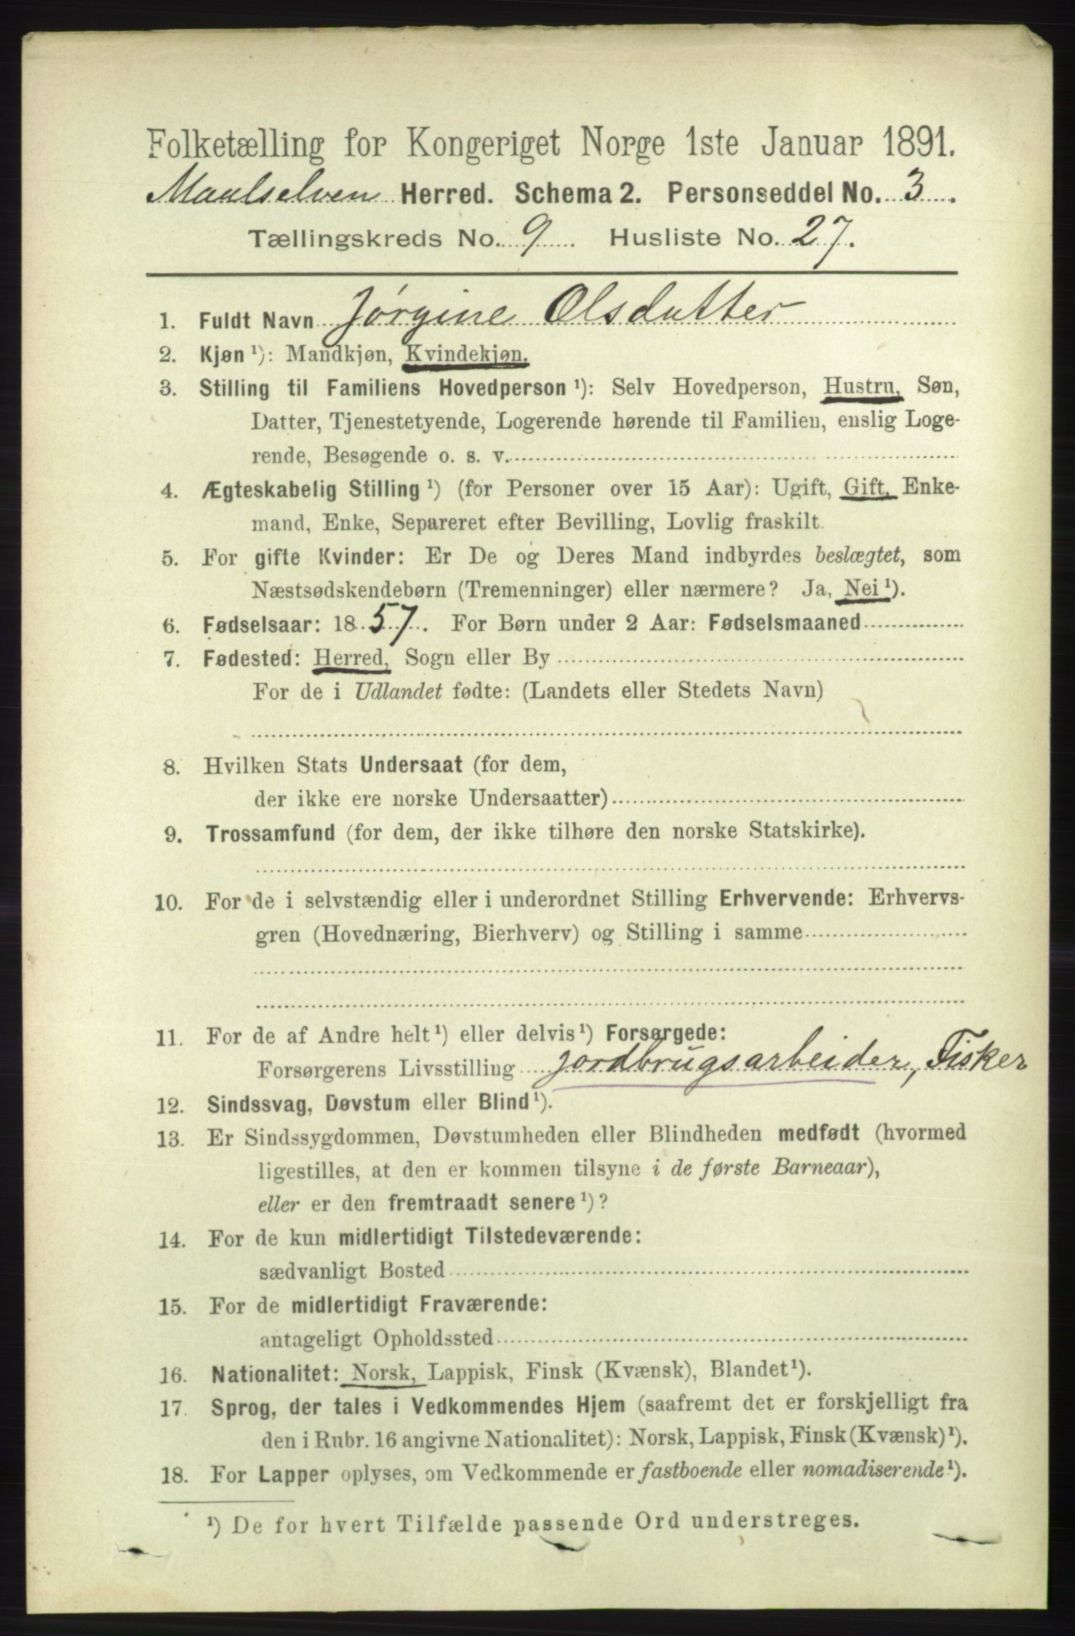 Folketælling for Kongeriget Norge 1ste Januar 1891.
Maalselven Herred. Schema 2. Personseddel No. 3.
Tællingskreds No. 9 Husliste No. 27.
1. Fuldt Navn Jørgine Olsdatter
2. Kjøn ¹): Mandkjøn, Kvindekjøn.
3. Stilling til Familiens Hovedperson ¹): Selv Hovedperson, Hustru, Søn,
Datter, Tjenestetyende, Logerende hørende til Familien, enslig Loge-
rende, Besøgende o. s. v.
4. Ægteskabelig Stilling ¹) (for Personer over 15 Aar): Ugift, Gift, Enke-
mand, Enke, Separeret efter Bevilling, Lovlig fraskilt.
5. For gifte Kvinder: Er De og Deres Mand indbyrdes beslægtet, som
Næstsødskendebørn (Tremenninger) eller nærmere? Ja, Nei ¹).
6. Fødselsaar: 1857. For Børn under 2 Aar: Fødselsmaaned
7. Fødested: Herred, Sogn eller By
For de i Udlandet fødte: (Landets eller Stedets Navn)
8. Hvilken Stats Undersaat (for dem,
der ikke ere norske Undersaatter)
9. Trossamfund (for dem, der ikke tilhøre den norske Statskirke).
10. For de i selvstændig eller i underordnet Stilling Erhvervende: Erhvervs-
gren (Hovednæring, Bierhverv) og Stilling i samme
11. For de af Andre helt ¹) eller delvis ¹) Forsørgede:
Forsørgerens Livsstilling jordbrugsarbeider, Fisker
12. Sindssvag, Døvstum eller Blind ¹).
13. Er Sindssygdommen, Døvstumheden eller Blindheden medfødt (hvormed
ligestilles, at den er kommen tilsyne i de første Barneaar),
eller er den fremtraadt senere ¹)?
14. For de kun midlertidigt Tilstedeværende:
sædvanligt Bosted
15. For de midlertidigt Fraværende:
antageligt Opholdssted
16. Nationalitet: Norsk, Lappisk, Finsk (Kvænsk), Blandet ¹).
17. Sprog, der tales i Vedkommendes Hjem (saafremt det er forskjelligt fra
den i Rubr. 16 angivne Nationalitet): Norsk, Lappisk, Finsk (Kvænsk) ¹).
18. For Lapper oplyses, om Vedkommende er fastboende eller nomadiserende ¹).
¹) De for hvert Tilfælde passende Ord understreges.